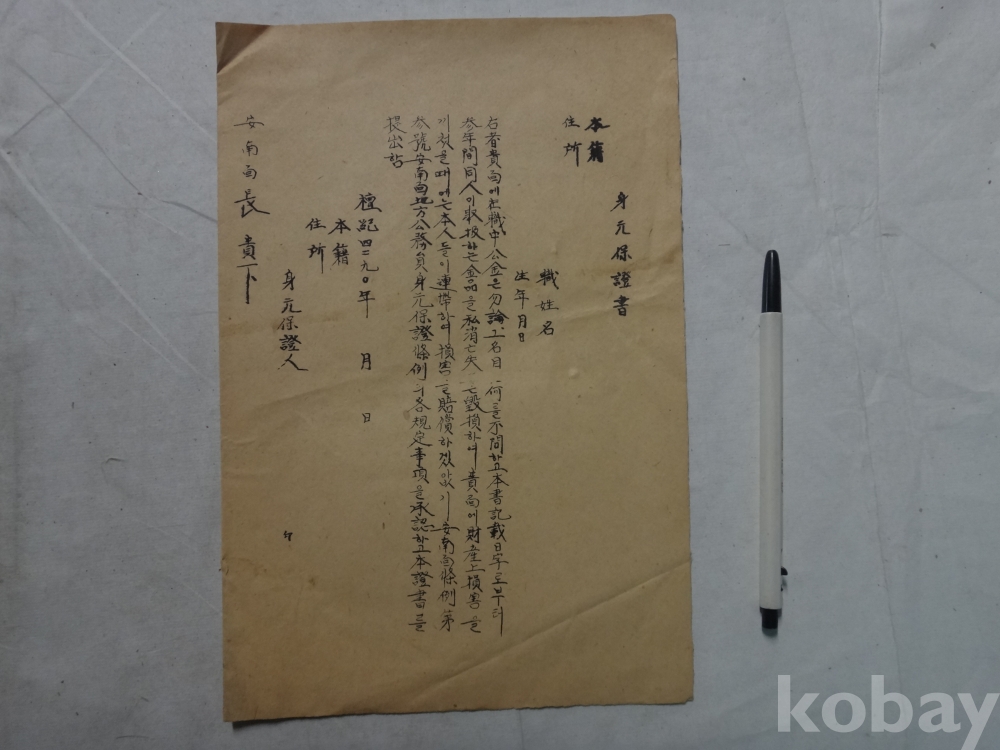 身元保證書
本籍
住所
職姓名
生年月日
右者貴面에在職中公金은勿論그名目 何를不問하고本書記載日字로부터
叄年間同人이取扱하는金品을私消亡失 는毁損하여貴面에財產上損害를
기쳤을때에는本人들이連帶하여損害를賠償하겠압기安南面條例第
叄號安南面地方公務員身元保證條例의各規定事項을承認하고本證書를
提出함
檀紀四二九〇年 月 日
本籍
住所
身元保證人 印
安南面長 貴下
kobay